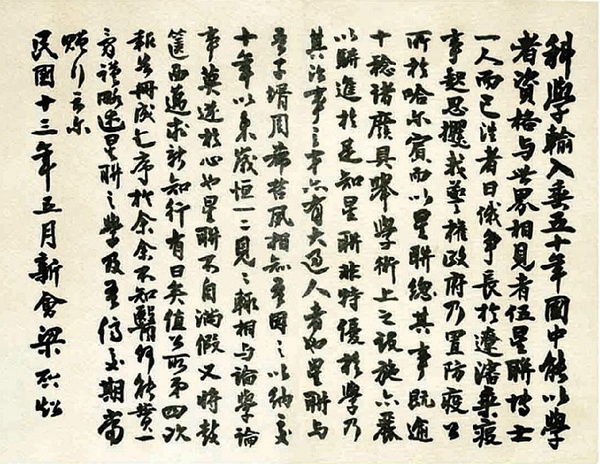 科學輸入垂五十年國中能以學
者資格与世界相見者伍星聯博士
一人而已往者日俄爭長於遼瀋乘疫
事起思攫我警權政府乃置防疫公
所於哈尔賓而以星聯總其事既逾
十稔諸廢具舉學術上之設施亦
以駢進於是知星聯非特優於學乃
其治事之才亦有大過人者如星聯与
吾子壻周希哲夙相知吾因之以納交
十年以來歲恒一二見見輒相与論學論
事莫逆於心也星聯不自滿假又時鼓
篋西邁求新知行有日矣值公所第四次
報告冊成乞序於余余不知醫何能贊一
辭謹略述星聯之學及吾儕交期當
贈行云尔
民國十三年五月新會梁啟超